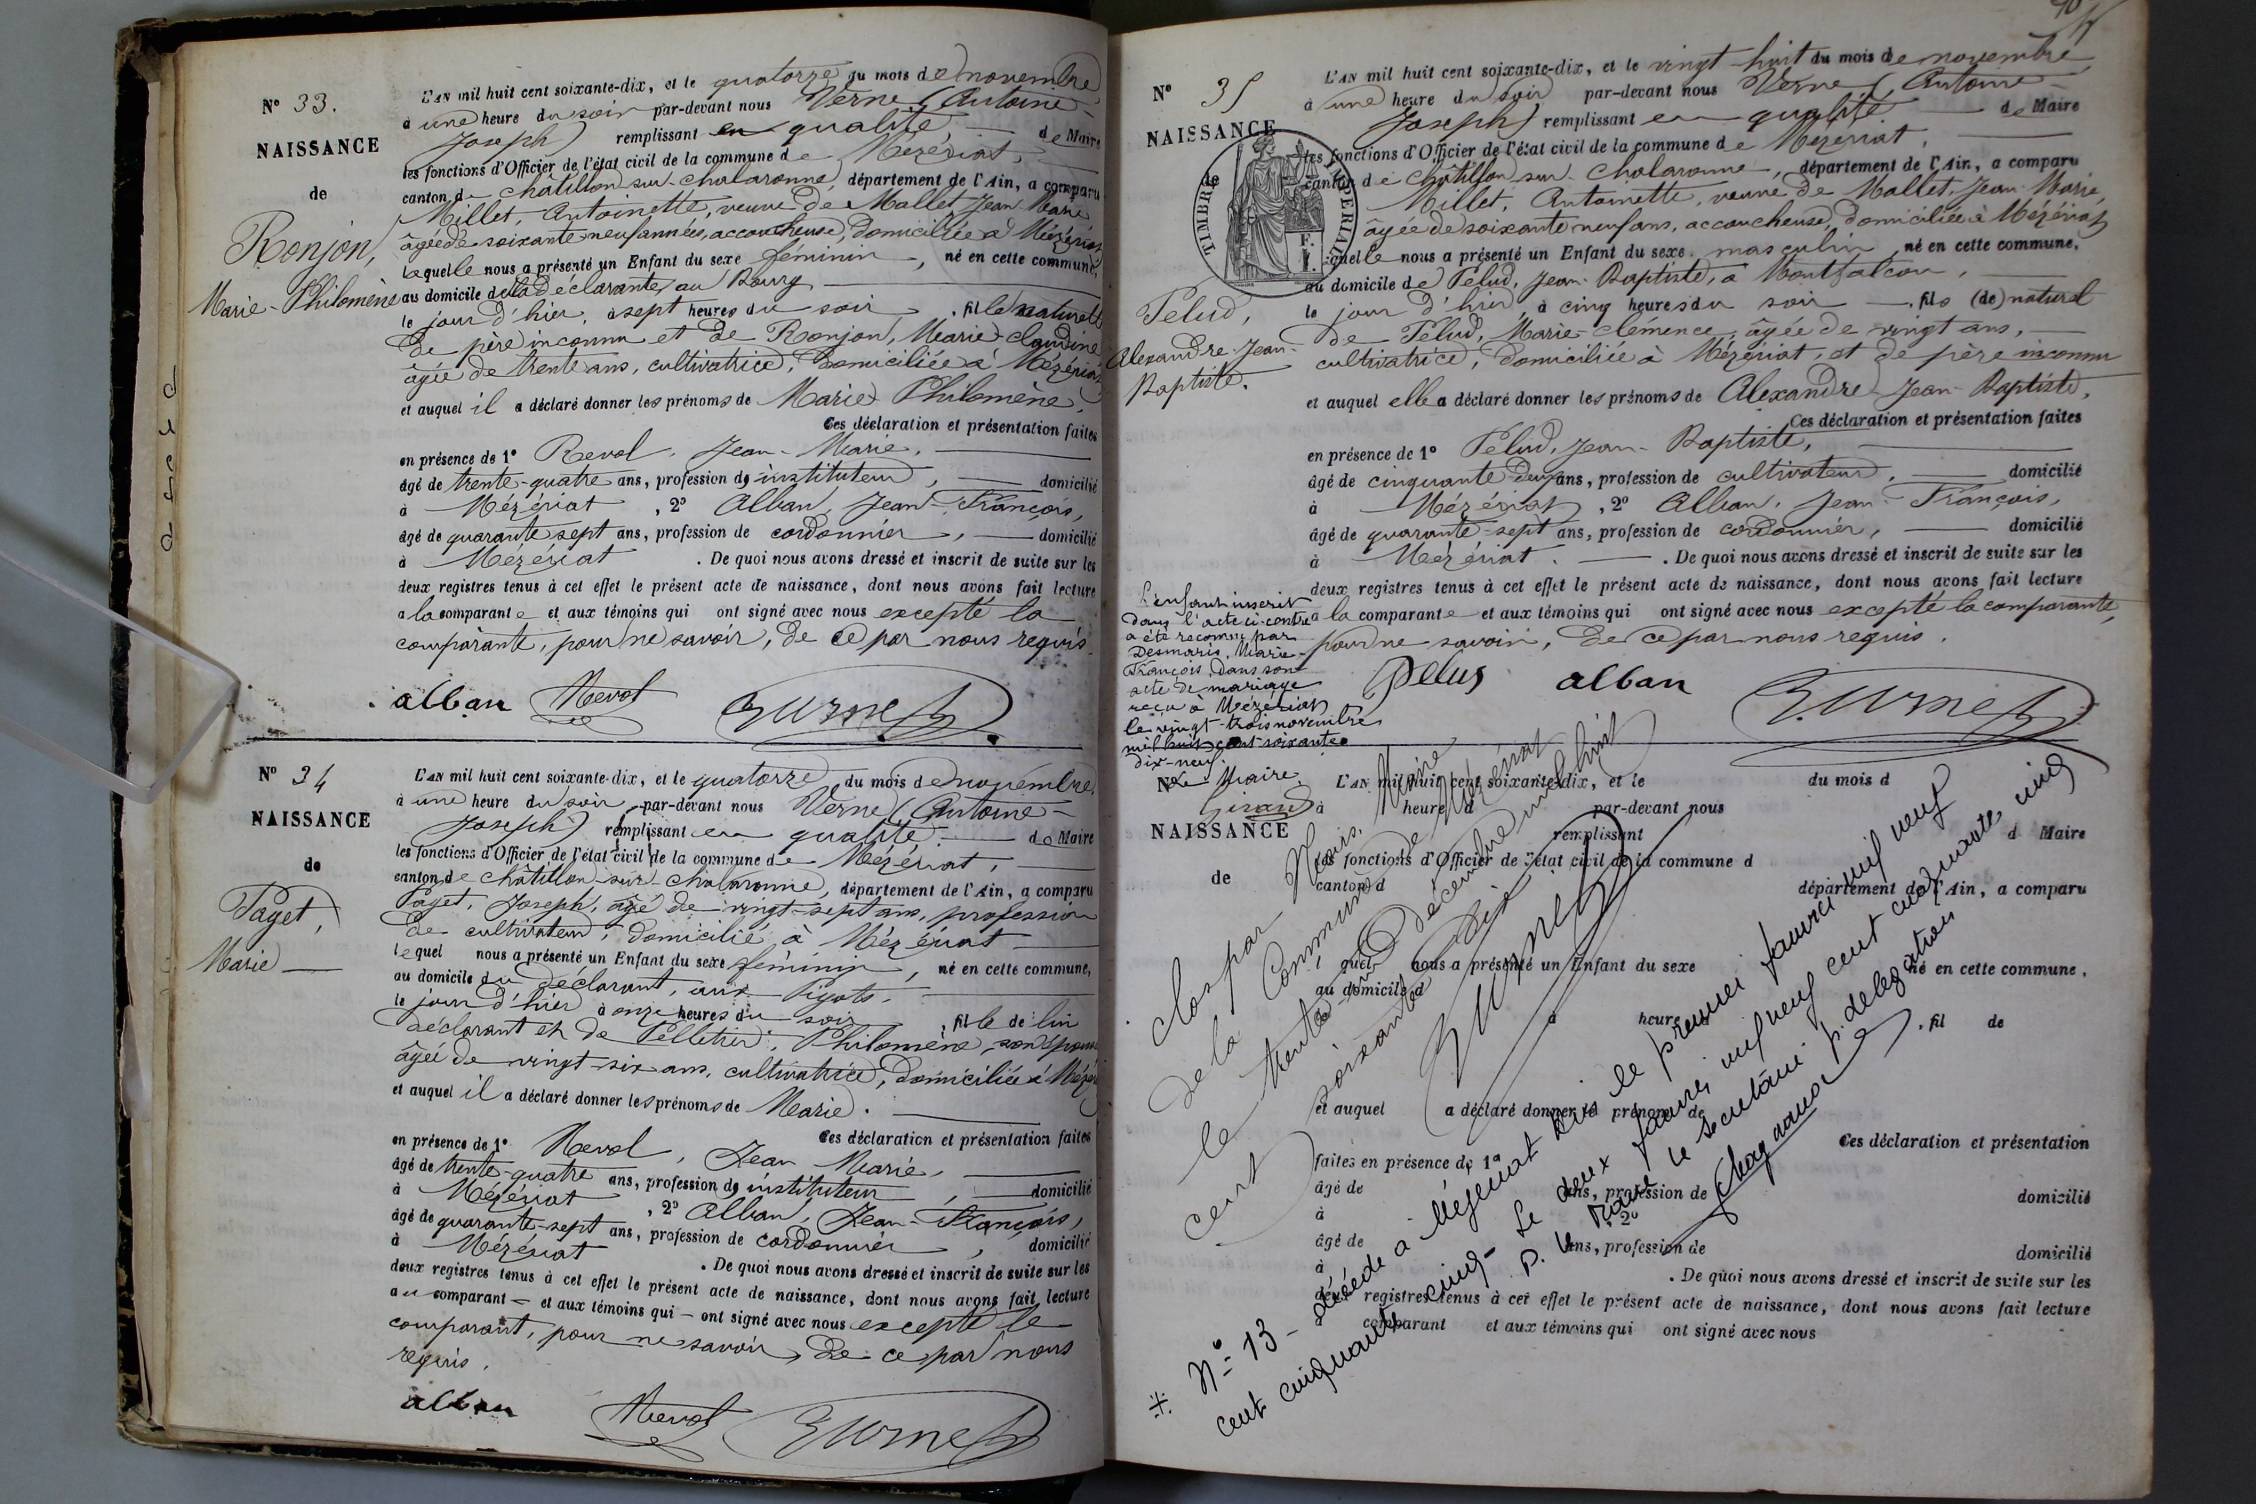 N° 33.
NAISSANCE
de
Ronjon,
Marie-Philomène
L'AN mil huit cent soixante-dix, et le quatorze du mois de novembre
à une heure du soir par-devant nous Verne (Antoine-
Joseph) remplissant en qualité, de Maire
les fonctions d'Officier de l'état civil de la commune de Mézériat,
canton de Châtillon-sur-Chalaronne, département de l'Ain, a comparu
Millet, Antoinette, veuve de Mallet Jean Marie
âgée de soixante neuf années, accoucheuse, domiciliée à Mézériat
laquelle nous a présenté un Enfant du sexe féminin, né en cette commune,
au domicile de la déclarante, au Bourg
le jour d'hier, à sept heures du soir, fille naturelle
de père inconnu et de Ronjon, Marie-Claudine
âgée de trente ans, cultivatrice, domiciliée à Mézériat
et auquel il a déclaré donner les prénoms de Marie Philomène.
Ces déclaration et présentation faites
en présence de 1° Revol, Jean-Marie,
âgé de trente-quatre ans, profession d'instituteur, domicilié
à Mézériat, 2° Alban, Jean-François,
âgé de quarante sept ans, profession de cordonnier, domicilié
à Mézériat. De quoi nous avons dressé et inscrit de suite sur les
deux registres tenus à cet effet le présent acte de naissance, dont nous avons fait lecture
a la comparante et aux témoins qui ont signé avec nous excepté la
comparante, pour ne savoir, de ce par nous requis.
alban Revol Verne
N° 34
NAISSANCE
de
Paget,
Marie
L'AN mil huit cent soixante-dix, et le quatorze du mois de novembre
à une heure du soir par-devant nous Verne (Antoine-
Joseph) remplissant en qualité de Maire
les fonctions d'Officier de l'état civil de la commune de Mézériat,
canton de Châtillon-sur-Chalaronne, département de l'Ain, a comparu
Paget, Joseph, âgé de vingt-sept ans, profession
de cultivateur, domicilié à Mézériat
lequel nous a présenté un Enfant du sexe féminin, né en cette commune,
au domicile du déclarant, aux Pigots.
le jour d'hier à onze heures du soir, fille de lui
déclarant et de Pelletier, Philomène, son épouse
âgée de vingt-six ans, cultivatrice, domiciliée à Mézér
et auquel il a déclaré donner les prénoms de Marie.
Ces déclaration et présentation faites
en présence de 1° Revol, Jean Marie,
âgé de trente-quatre ans, profession d'instituteur, domicilié
à Mézériat, 2° Alban, Jean-François,
âgé de quarante-sept ans, profession de cordonnier, domicilié
à Mézériat. De quoi nous avons dressé et inscrit de suite sur les
deux registres tenus à cet effet le présent acte de naissance, dont nous avons fait lecture
au comparant et aux témoins qui ont signé avec nous excepté le
comparant, pour ne savoir, de ce par nous
requis.
alban Revol Verne
N° 35
NAISSANCE
de
TIMBRE IMPERIAL
F.
I.
Pelud,
Alexandre-Jean-
Baptiste.
L'AN mil huit cent soixante-dix, et le vingt-huit du mois de novembre
à une heure du soir par-devant nous Verne (Antoine
Joseph) remplissant en qualité de Maire
les fonctions d'Officier de l'état civil de la commune de Mézériat,
canton de Châtillon-sur-Chalaronne, département de l'Ain, a comparu
Millet, Antoinette, veuve de Mallet, Jean Marie,
âgée de soixante neuf ans, accoucheuse, domiciliée à Mézériat
laquelle nous a présenté un Enfant du sexe masculin, né en cette commune,
au domicile de Pelud, Jean-Baptiste, à Montfalcon,
le jour d'hier, à cinq heures du soir, fils (de) naturel
de Pelud, Marie-Clémence, âgée de vingt ans,
cultivatrice, domiciliée à Mézériat, et de père inconnu
et auquel elle a déclaré donner les prénoms de Alexandre Jean-Baptiste,
Ces déclaration et présentation faites
en présence de 1° Pelud, Jean-Baptiste,
âgé de cinquante deux ans, profession de cultivateur, domicilié
à Mézériat, 2° Alban, Jean-François,
âgé de quarante-sept ans, profession de cordonnier, domicilié
à Mézériat. De quoi nous avons dressé et inscrit de suite sur les
deux registres tenus à cet effet le présent acte de naissance, dont nous avons fait lecture
a la comparante et aux témoins qui ont signé avec nous excepté la comparante,
pour ne savoir, de ce par nous requis.
Pelus alban Verne
L'enfant inscrit
dans l'acte ci-contre
a été reconnu par
Desmaris, Marie-
François, dans son
acte de mariage
reçu à Mézériat
le vingt-trois novembre
mil huit cent soixante
dix-neuf.
Le Maire
Giraud
N°
NAISSANCE
de
L'AN mil huit cent soixante-dix, et le du mois d
à heure d par-devant nous
remplissant d Maire
les fonctions d'Officier de l'état civil de la commune d
canton d département de l'Ain, a comparu
quel nous a présenté un Enfant du sexe né en cette commune,
au domicile d
à heure , fil de
et auquel a déclaré donner le prénom de
Ces déclaration et présentation
faites en présence de 1°
âgé de ans, profession de domicilié
à 2°
âgé de ans, profession de domicilié
à . De quoi nous avons dressé et inscrit de suite sur les
deux registres tenus à cet effet le présent acte de naissance, dont nous avons fait lecture
a comparant et aux témoins qui ont signé avec nous
Clos par Nous, Maire
de la Commune de Mézériat
le trente un décembre mil huit
cent soixante dix.
Verne
N° 13 - décédé a Mézériat Ain le premier janvier mil neuf
cent cinquante cinq - Le deux janvier mil neuf cent cinquante cinq
P. le Maire le secrétaire p. délégation